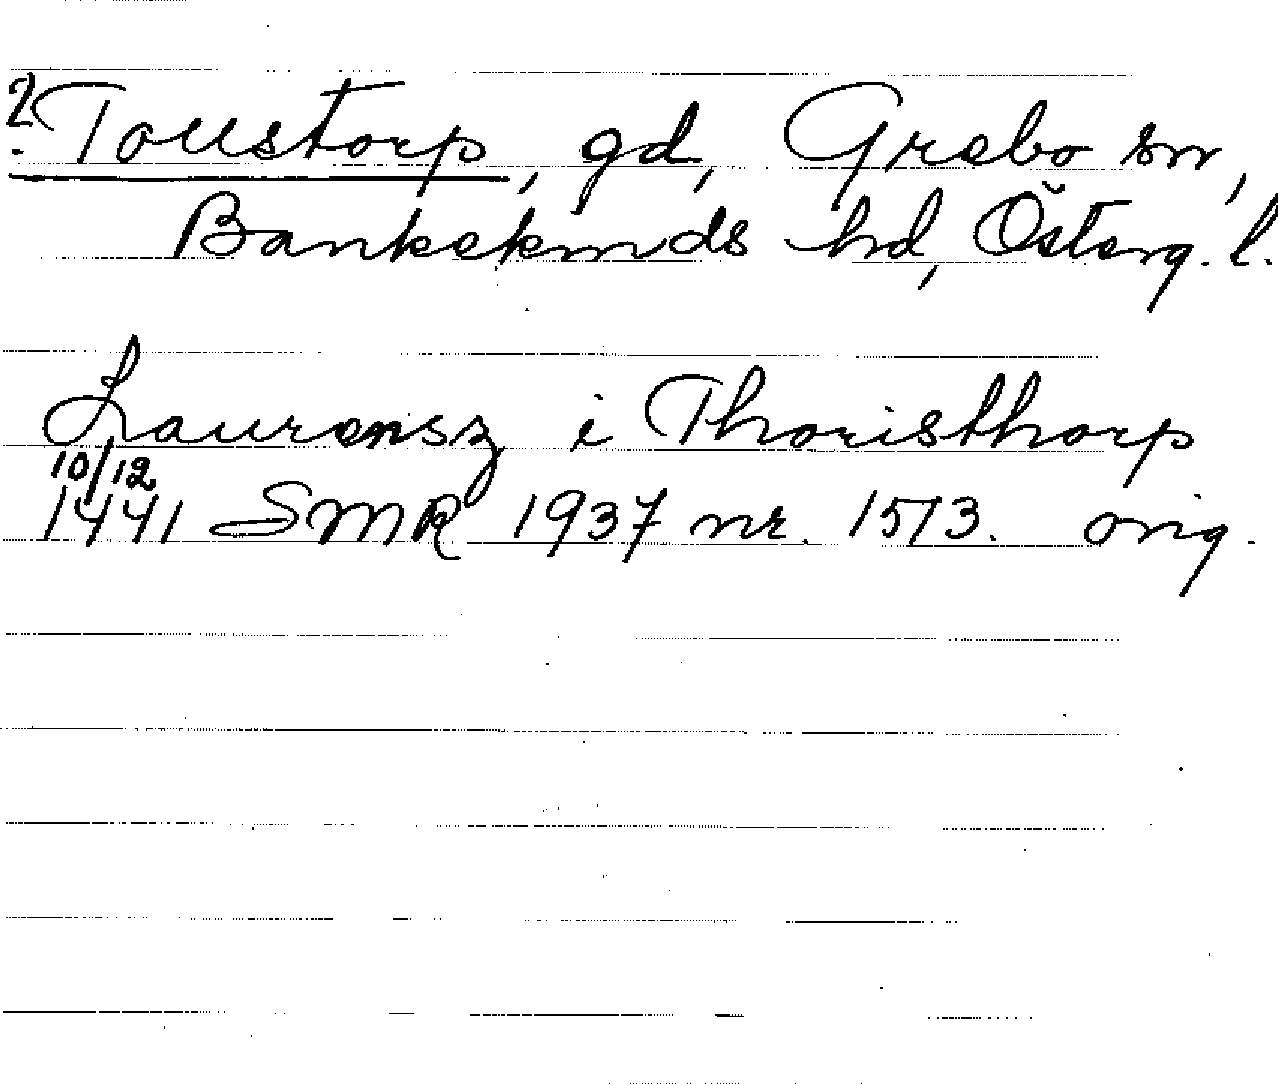 ? Toustorp, gd, Grebo sn,
Bankekinds hd, Österg. l.
Laurensz i Thoristhorp
10/12
1441 SMR 1937 nr. 1513. orig.